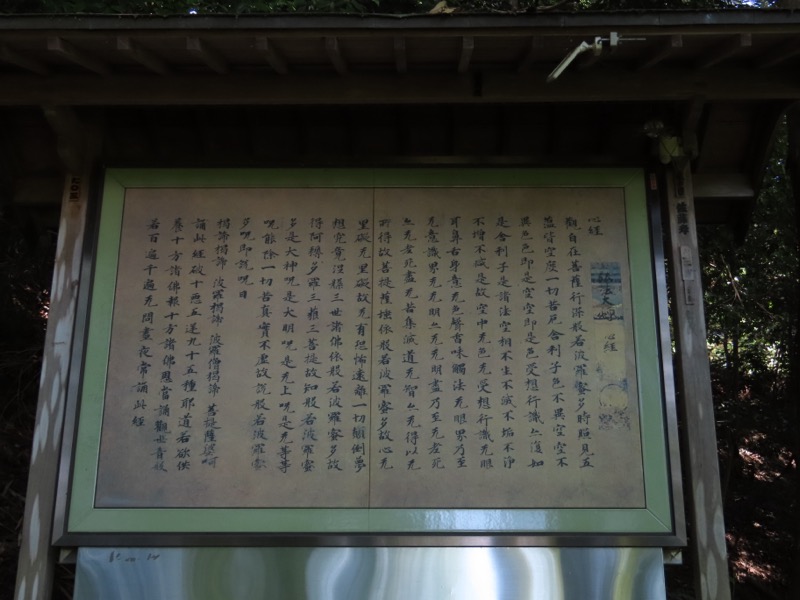 心経
観自在菩薩行深般若波羅蜜多時照見五
蘊皆空度一切苦厄舎利子色不異空空不
異色色即是空空即是色受想行識亦復如
是舎利子是諸法空相不生不滅不垢不浄
不増不減是故空中无色无受想行識无眼
耳鼻舌身意无色聲香味觸法无眼界乃至
无意識界无无明亦无无明盡乃至无老死
亦无老死盡无苦集滅道无智亦无得以无
所得故菩提薩埵依般若波羅蜜多故心无
罣礙无罣礙故无有恐怖遠離一切顛倒夢
想究竟涅槃三世諸佛依般若波羅蜜多故
得阿耨多羅三藐三菩提故知般若波羅蜜
多是大神呪是大明呪是无上呪是无等等
呪能除一切苦真實不虚故説般若波羅蜜
多呪即説呪曰
掲諦掲諦 波羅掲諦 波羅僧掲諦 菩提薩婆呵
誦此経破十悪五逆九十五種耶道若欲供
養十方諸佛報十方諸佛恩當誦観世音般
若百遍千遍无間晝夜常誦此経
心経